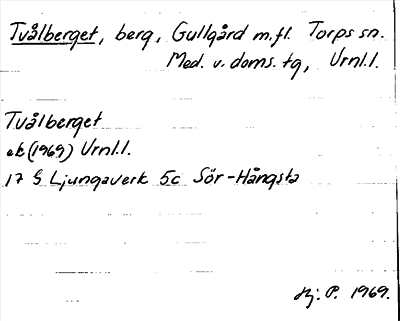 Tvålberget, berg, Gullgård m.fl. Torps sn.
Med. v. doms. tg, Urnl.l.
Tvålberget
ek (1969) Urnl.l.
17 G Ljungaverk 5c Sör-Hångsta
Hj. P. 1969.